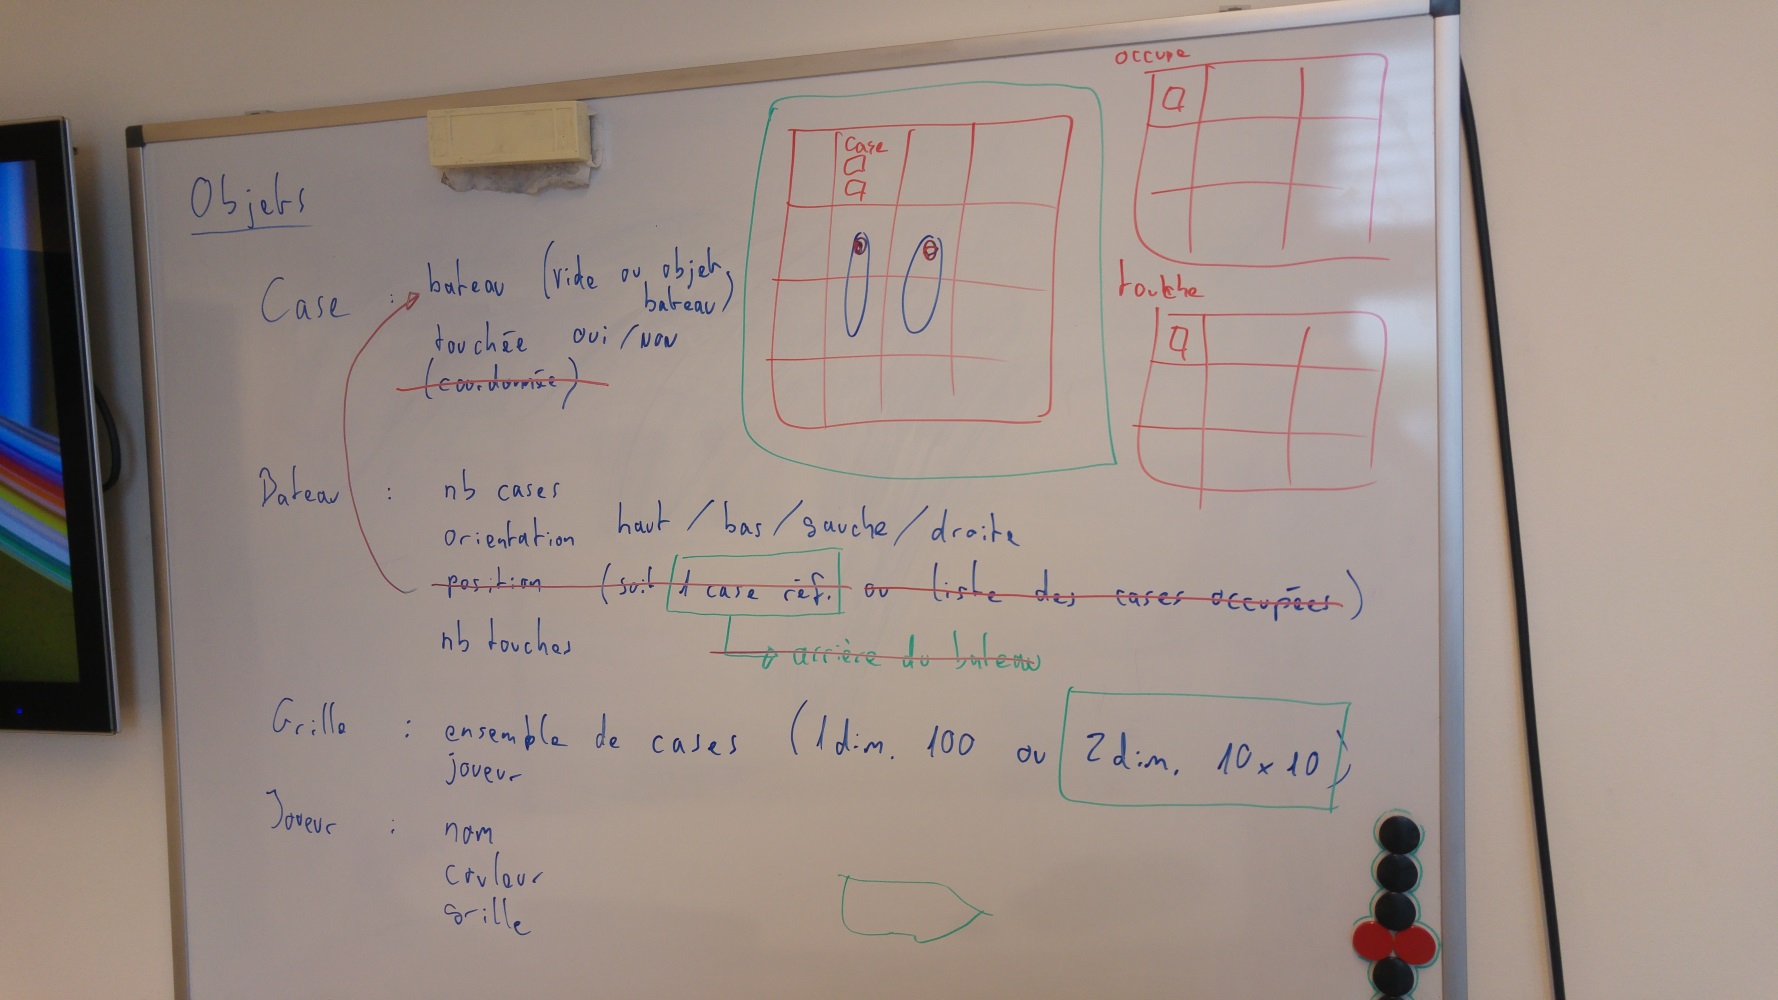 Objets
Case : bateau (vide ou objet bateau)
touchée oui / non
(coordonnée)
Bateau : nb cases
orientation haut / bas / gauche / droite
position (soit 1 case réf. ou liste des cases occupées)
arrière du bateau
nb touches
Grille : ensemble de cases (1 dim. 100 ou 2 dim. 10 x 10)
joueur
Joueur : nom
couleur
grille
Case
occupe
touche